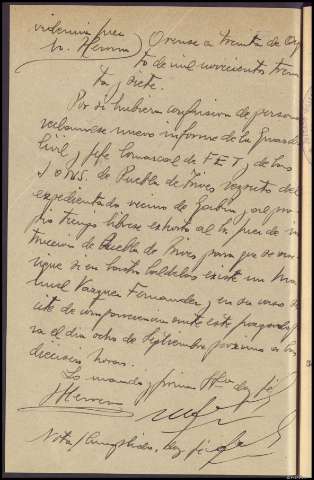 Providencia juez
Sr. Herrero
Orense a treinta de Ag
to de mil novecientos trein
ta y siete.
Por si hubiera confusion de persona
recibanse nuevo informe de la Guardia
Civil, y Jefe Comarcal de FET, y de las
JONS. de Puebla de Trives respecto del
expedientado vecino de y al pro
pio tiempo librese exhorto al Sr juez de ins
truccion de Puebla de Trives para que se ave
rigue si en Castro Caldelas existe un Ma
nuel Vazquez Fernandez, y en su caso se
cite de comparecencia ante este juzgado pa
ra el dia ocho de Septiembre proximo a las
dieciseis horas.
Lo mando y firma SSª doy fé
Herrero
Nota/ Cumplido, doy fé